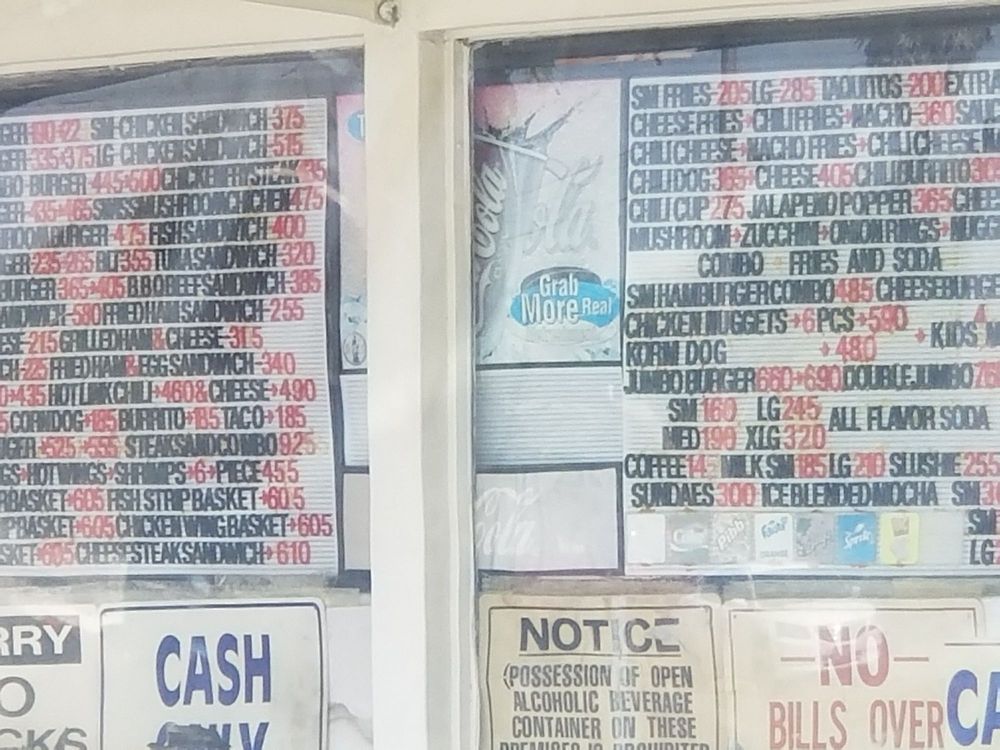 SM CHICKEN SANDWICH 375
GER 335 375 LG CHICKEN SANDWICH 515
BO BURGER 445 500 CHICKEN
GER 435 465 SWISS MUSHROOM CHICKEN 475
BURGER 475 FISH SANDWICH 400
GER 235 265 BLT 355 TUNA SANDWICH 320
BURGER 365 405 B B Q BEEF SANDWICH 385
ANDWICH 580 FRIED HAM SANDWICH 255
ESE 215 GRILLED HAM & CHEESE 315
CH 225 FRIED HAM & EGG SANDWICH 340
435 HOT LINK CHILI 460 & CHEESE 490
CORN DOG 185 BURRITO 185 TACO 185
GER 525 555 STEAK SAND COMBO 925
GS HOT WINGS SHRIMPS 6 PIECE 455
BASKET 605 FISH STRIP BASKET 605
P BASKET 605 CHICKEN WING BASKET 605
SKET 605 CHEESE STEAK SANDWICH 610
Cola
Grab
More Real
SM FRIES 205 LG 285 TAQUITOS 200 EXTRA
CHEESE FRIES CHILI FRIES NACHO 360
CHILI CHEESE NACHO FRIES CHILI CHEESE
CHILI DOG 365 CHEESE 405 CHILI BURRITO
CHILI CUP 275 JALAPENO POPPER 365 CHEE
MUSHROOM ZUCCHINI ONION RINGS NUGG
COMBO FRIES AND SODA
SM HAMBURGER COMBO 485 CHEESEBURGE
CHICKEN NUGGETS 6 PCS 590 KIDS
KORN DOG 480
JUMBO BURGER 660 690 DOUBLE JUMBO
SM 160 LG 245 ALL FLAVOR SODA
MED 190 XLG 320
COFFEE MILK SM 185 LG 210 SLUSHIE 255
SUNDAES 300 ICE BLENDED MOCHA SM
Pibb
Sprite
SM
LG
RRY
O
CKS
CASH
ONLY
NOTICE
(POSSESSION OF OPEN
ALCOHOLIC BEVERAGE
CONTAINER ON THESE
PREMISES IS PROHIBITED
NO
BILLS OVER
CA